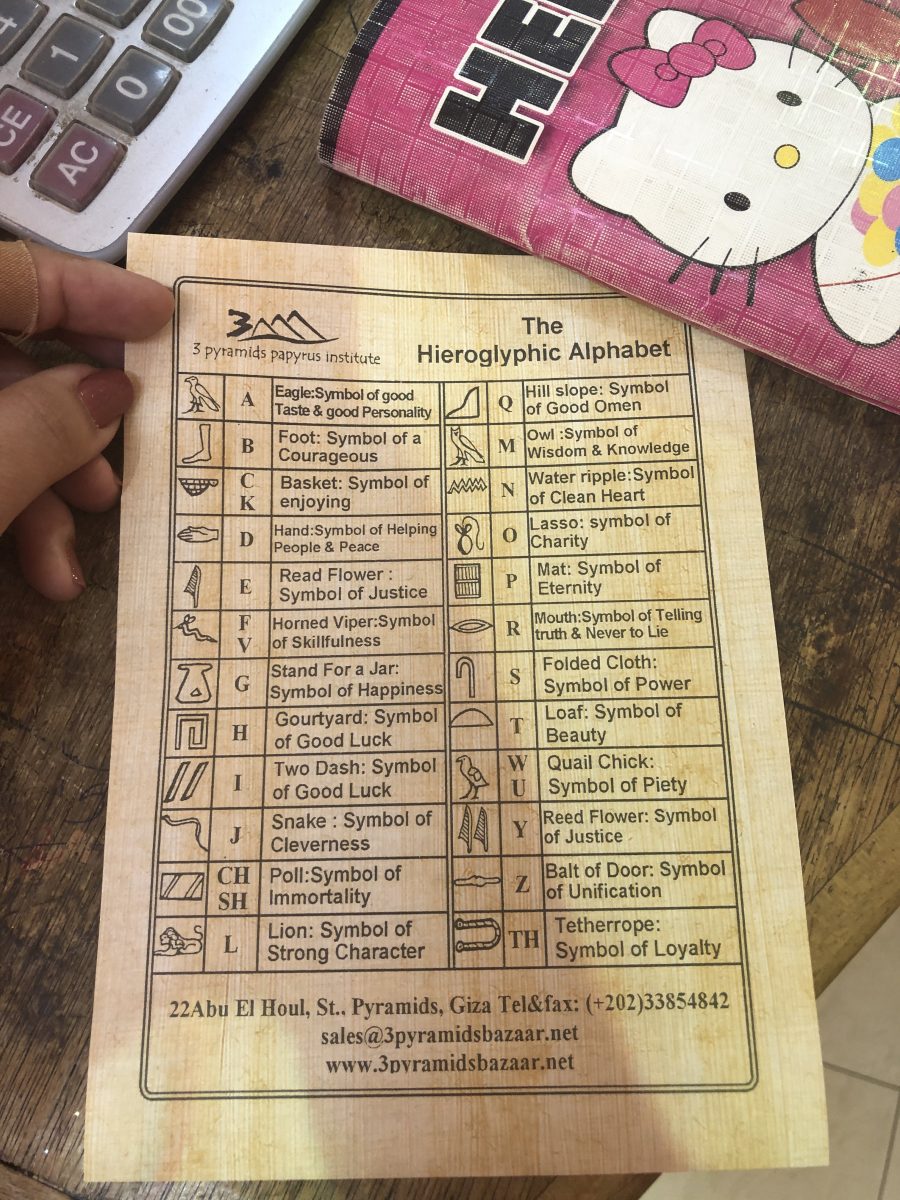 4
1
00
0
CE
AC
HE
3
3 pyramids papyrus institute
The
Hieroglyphic Alphabet
A
Eagle:Symbol of good
Taste & good Personality
B
Foot: Symbol of a
Courageous
C
K
Basket: Symbol of
enjoying
D
Hand:Symbol of Helping
People & Peace
E
Read Flower :
Symbol of Justice
F
V
Horned Viper:Symbol
of Skillfulness
G
Stand For a Jar:
Symbol of Happiness
H
Gourtyard: Symbol
of Good Luck
I
Two Dash: Symbol
of Good Luck
J
Snake : Symbol of
Cleverness
CH
SH
Poll:Symbol of
Immortality
L
Lion: Symbol of
Strong Character
Q
Hill slope: Symbol
of Good Omen
M
Owl :Symbol of
Wisdom & Knowledge
N
Water ripple:Symbol
of Clean Heart
O
Lasso: symbol of
Charity
P
Mat: Symbol of
Eternity
R
Mouth:Symbol of Telling
truth & Never to Lie
S
Folded Cloth:
Symbol of Power
T
Loaf: Symbol of
Beauty
W
U
Quail Chick:
Symbol of Piety
Y
Reed Flower: Symbol
of Justice
Z
Balt of Door: Symbol
of Unification
TH
Tetherrope:
Symbol of Loyalty
22Abu El Houl, St.. Pyramids, Giza Tel&fax: (+202)33854842
sales@3pyramidsbazaar.net
www.3pyramidsbazaar.net